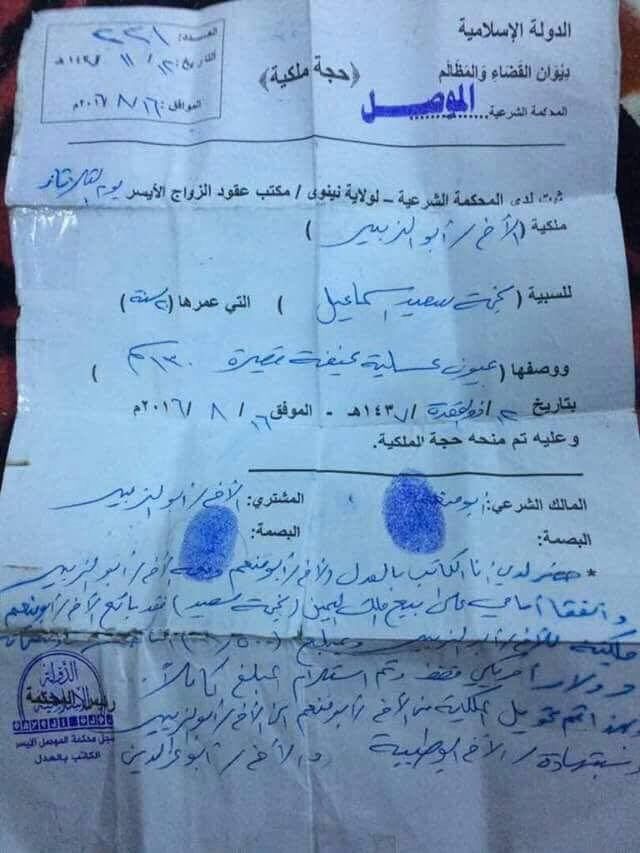 الدولة الإسلامية
ديوان القضاء والمظالم
المحكمة الشرعية الموصل
﴿حجة ملكية﴾
العدد: ٢٢١
التاريخ: ١٢ / ١١ / ١٤٣٧هـ
الموافق: ١٦ / ٨ / ٢٠١٦م
ثبت لدى المحكمة الشرعية - لولاية نينوى / مكتب عقود الزواج الأيسر يوم
ملكية ( الأخ / أبو الزبير )
للسبية ( نجمة سعيد اسماعيل ) التي عمرها ( سنة )
ووصفها ( عيون عسلية نحيفة قصيرة ١٣٠ سم )
بتاريخ ١٢ / ذو القعدة / ١٤٣٧هـ - الموافق ١٦ / ٨ / ٢٠١٦م
وعليه تم منحه حجة الملكية.
المالك الشرعي: أبو منعم المشتري: الأخ / أبو الزبير
البصمة: البصمة:
* حضر لدي أنا الكاتب بالعدل الأخ / أبو منعم أخ / أبو الزبير
واتفقا أمامي على بيع ملك اليمين (نجمة سعيد) فقد باع الأخ / أبو منعم
ملكيته للأخ / أبو الزبير وبمبلغ
دولار أمريكي فقط وتم استلام المبلغ كاملاً.
وبهذا تم تحويل الملكية من الأخ / أبو منعم الى الأخ / أبو الزبير
وبشهادة / الأخ والأخ / أبو عز الدين
الدولة الإسلامية
سجل محكمة الموصل الأيسر
الكاتب بالعدل